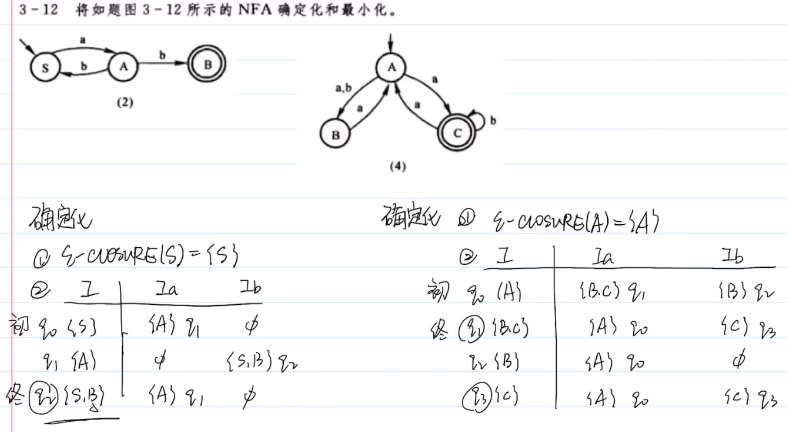 3-12 将如题图3-12所示的NFA确定化和最小化。
a
S
b
A
b
B
(2)
A
a,b
a
a
a
B
C
b
(4)
确定化
① ε-CLOSURE(S)={S}
② I Ia Ib
初 q0 {S} {A} q1 φ
q1 {A} φ {S,B} q2
终 q2 {S,B} {A} q1 φ
确定化 ① ε-CLOSURE(A)={A}
② I Ia Ib
初 q0 {A} {B,C} q1 {B} q2
终 q1 {B,C} {A} q0 {C} q3
q2 {B} {A} q0 φ
q3 {C} {A} q0 {C} q3